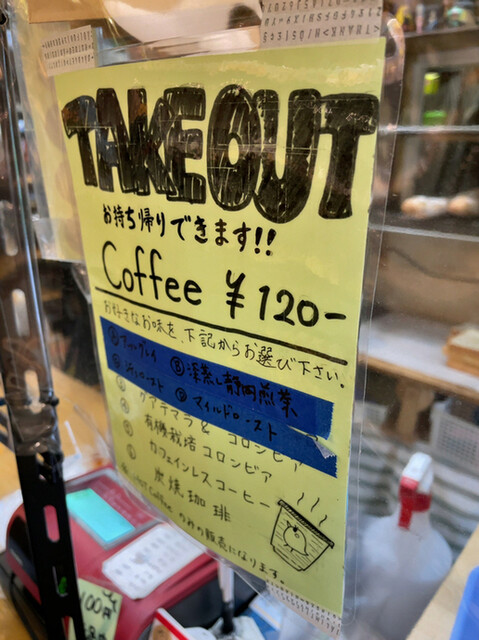 TAKEOUT
お持ち帰りできます!!
Coffee ¥120-
お好きなお味を、下記からお選び下さい。
Ⓑ深蒸し静岡煎茶
マイルドロースト
グアテマラ & コロンビア
有機栽培コロンビア
カフェインレスコーヒー
炭焼珈琲
Coffeeのみの販売になります。
100円